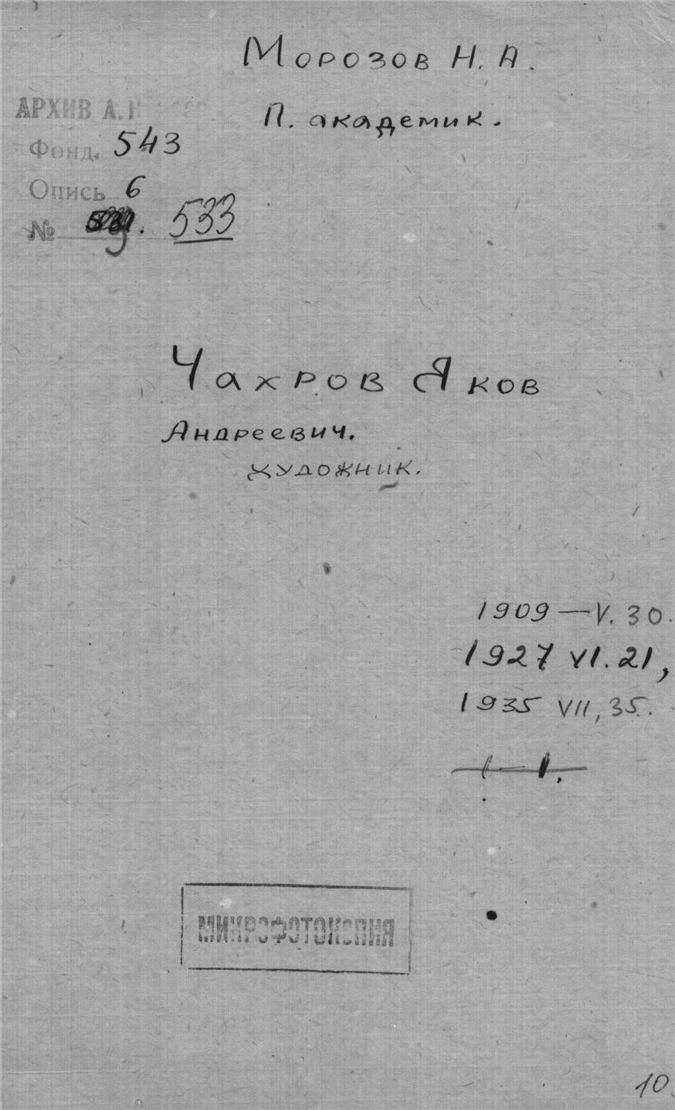 Морозов Н. А.
П. академик.
АРХИВ А.Н
Фонд. 543
Опись 6
№ 533
Чахров Яков
Андреевич.
художник.
1909 — V. 30.
1927 VI. 21,
1935 VII, 35.
МИКРОФОТОКОПИЯ
10.